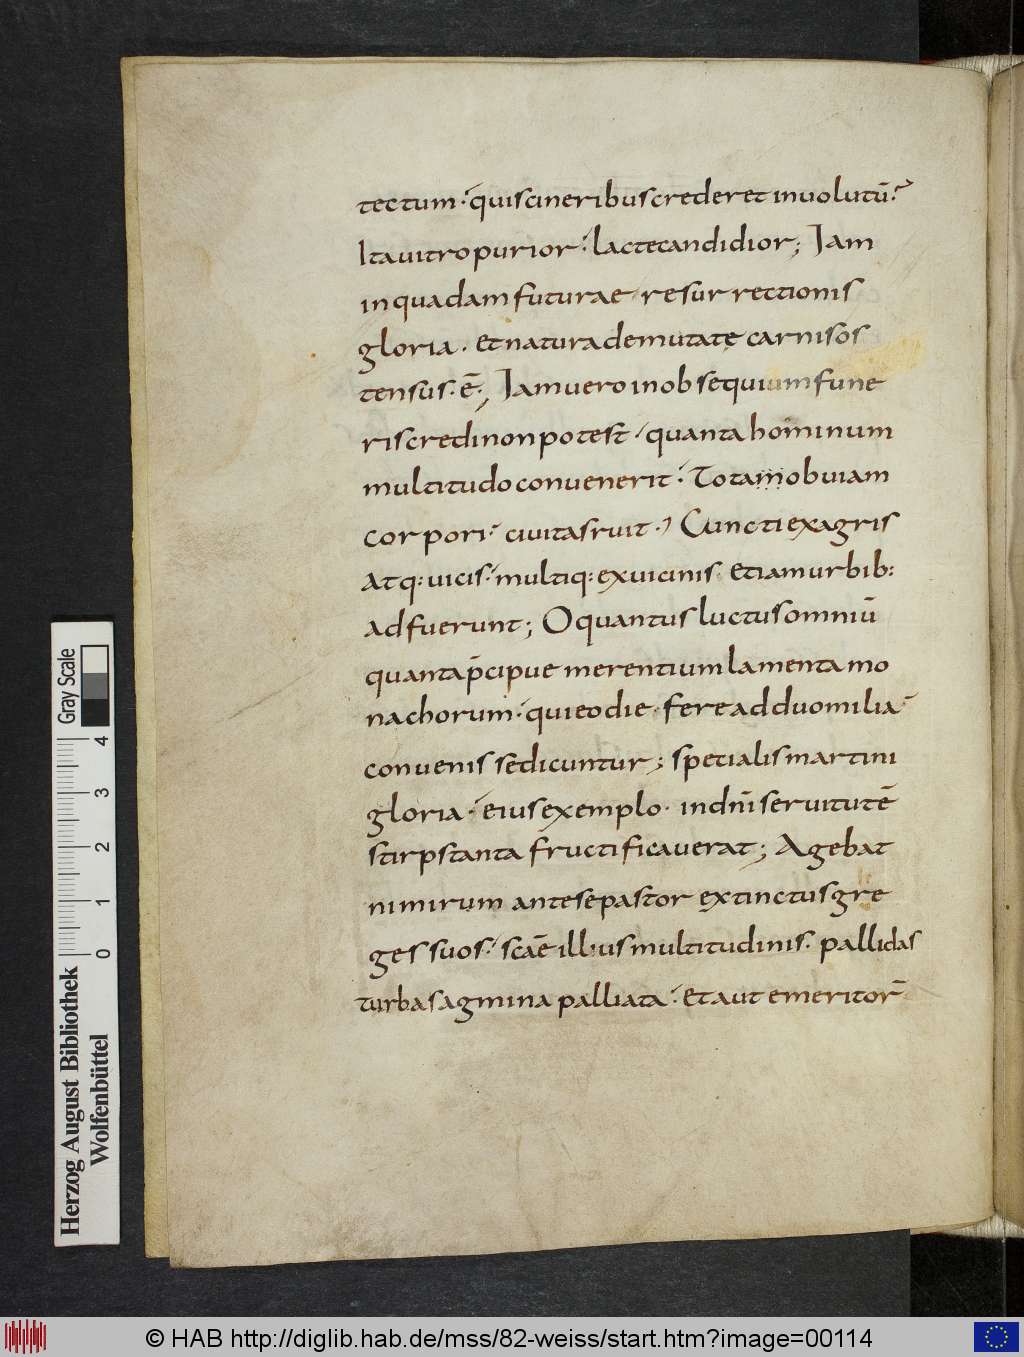 tectum· quis cineribus crederet inuolutū?
Ita uitro purior· lacte candidior; Iam
in quadam futurae resurrectionis
gloria· et natura demutatę carnis os
tensus· ē·; Iam uero in obsequium fune
ris credi non potest· quanta hominum
multitudo conuenerit· Totam obuiam
corpori· ciuitas ruit· Cuncti ex agris
atq: uicis· multiq: ex uicinis etiam urbib:
adfuerunt; O quantus luctus omniū
quanta p̄cipue merentium lamenta mo
nachorum· qui eo die fere ad duo milia
conuenisse dicuntur; specialis martini
gloria· eius exemplo· in dn̄i seruitutē
stirps tanta fructificauerat; Agebat
nimirum ante se pastor extinctus gre
ges suos· scāe illius multitudinis· pallidas
turbas agmina palliata· et aut emeritor̄
Herzog August Bibliothek
Wolfenbüttel
0 1 2 3 4
Gray Scale
© HAB http://diglib.hab.de/mss/82-weiss/start.htm?image=00114